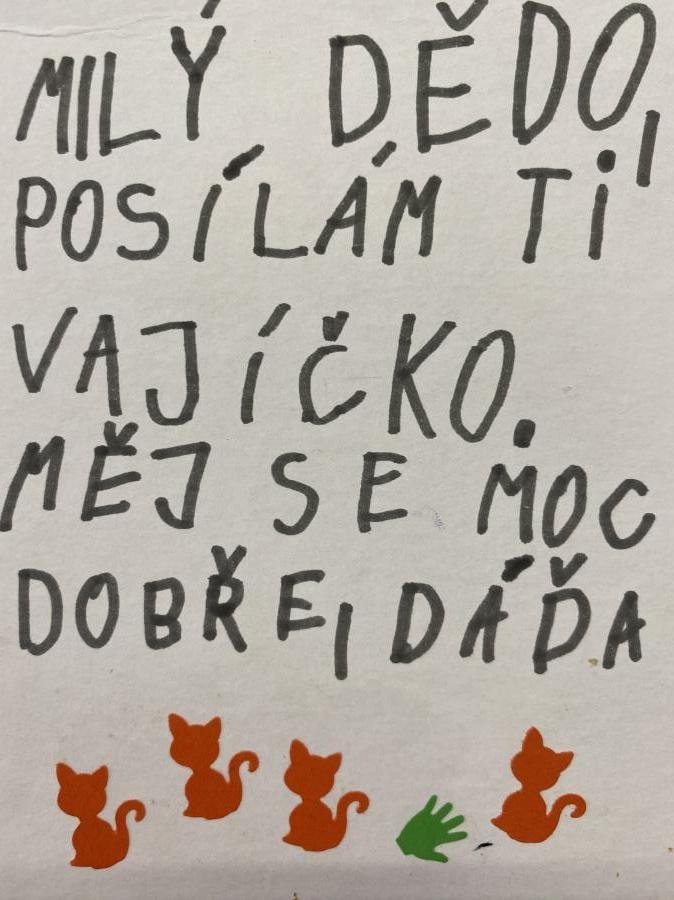 MILÝ DĚDO,
POSÍLÁM TI
VAJÍČKO.
MĚJ SE MOC
DOBŘE, DÁĎA